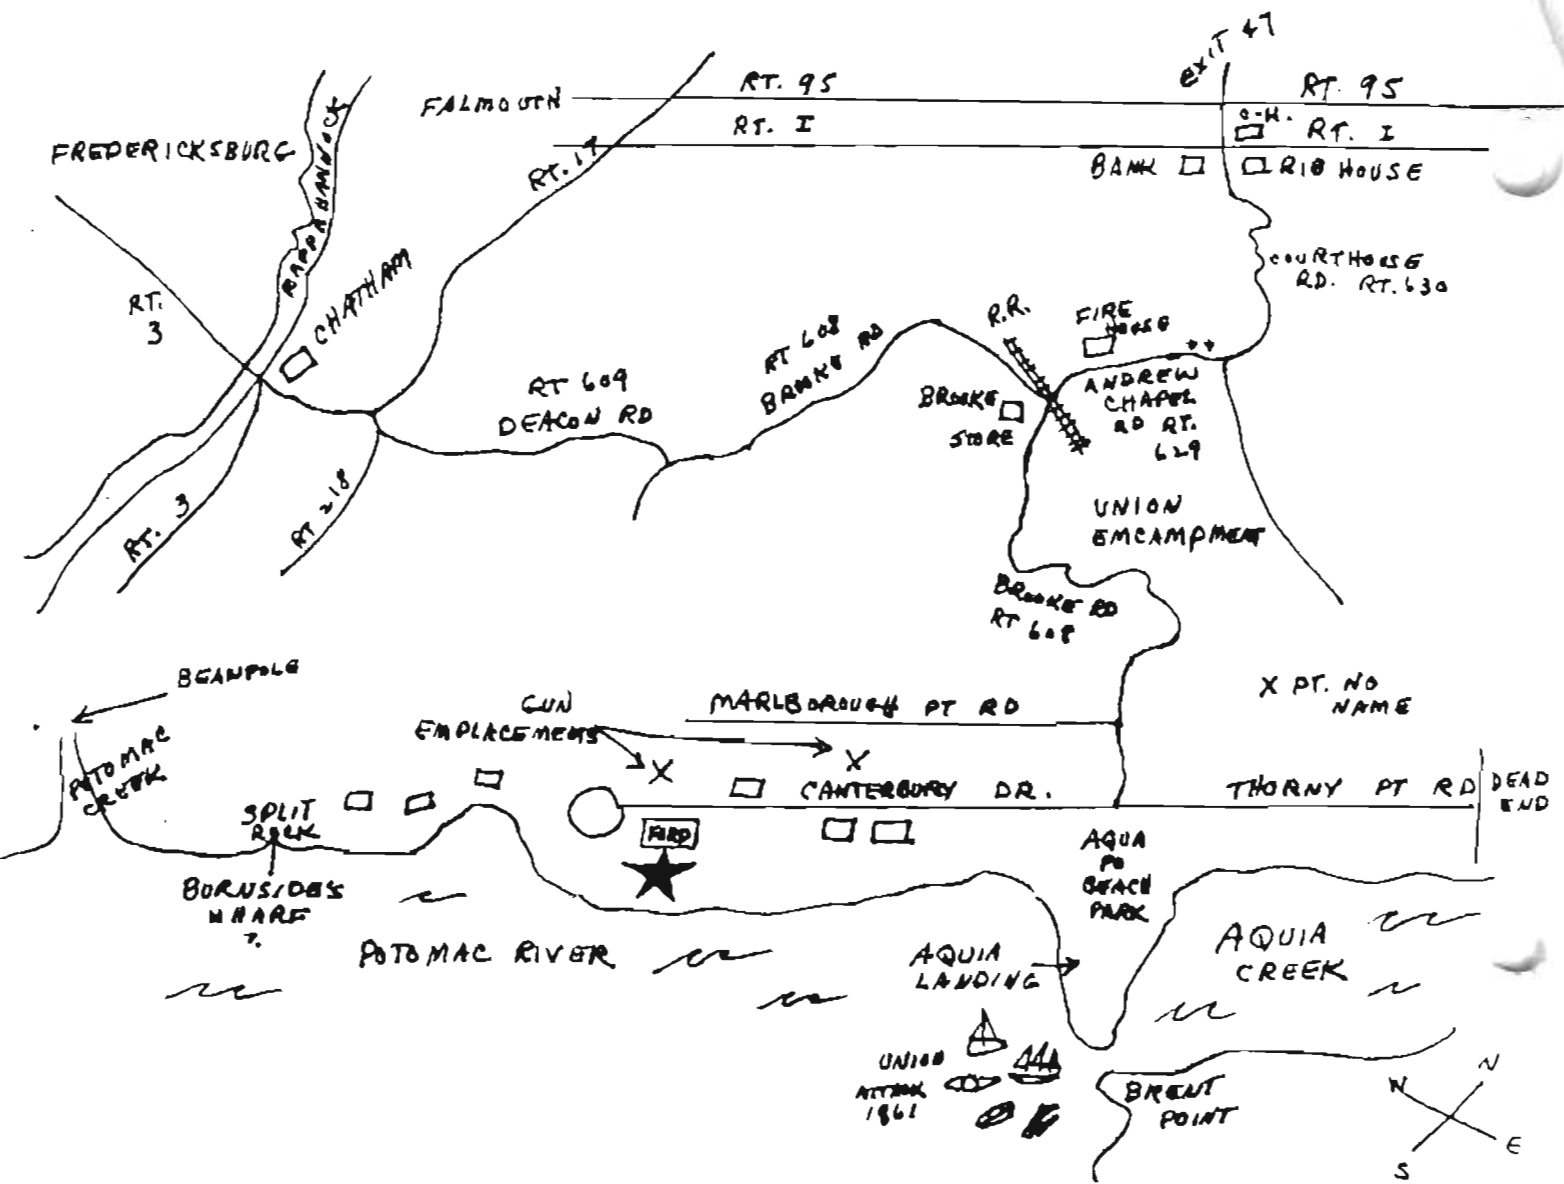 EXIT 47
RT. 95
RT. 95
FALMOUTH
RT. I
C-H.
RT. I
FREDERICKSBURG
RAPPAHANNOCK
RT. 17
BANK
RIB HOUSE
COURTHOUSE
RD. RT. 630
CHATHAM
RT.
3
R.R.
FIRE
HOUSE
RT 608
BROOKE RD
RT 609
DEACON RD
BROOKE
STORE
ANDREW
CHAPEL
RD RT.
629
RT. 3
RT 218
UNION
EMCAMPMENT
BROOKE RD
RT 608
BEANPOLE
X PT. NO
NAME
GUN
EMPLACEMENTS
MARLBOROUGH PT RD
POTOMAC
CREEK
X
X
CANTERBURY DR.
THORNY PT RD
DEAD
END
SPLIT
ROCK
FORD
AQUA
PO
BEACH
PARK
BURNSIDE'S
WHARF
?
POTOMAC RIVER
AQUIA
LANDING
AQUIA
CREEK
UNION
ATTACK
1861
BRENT
POINT
N
W
E
S